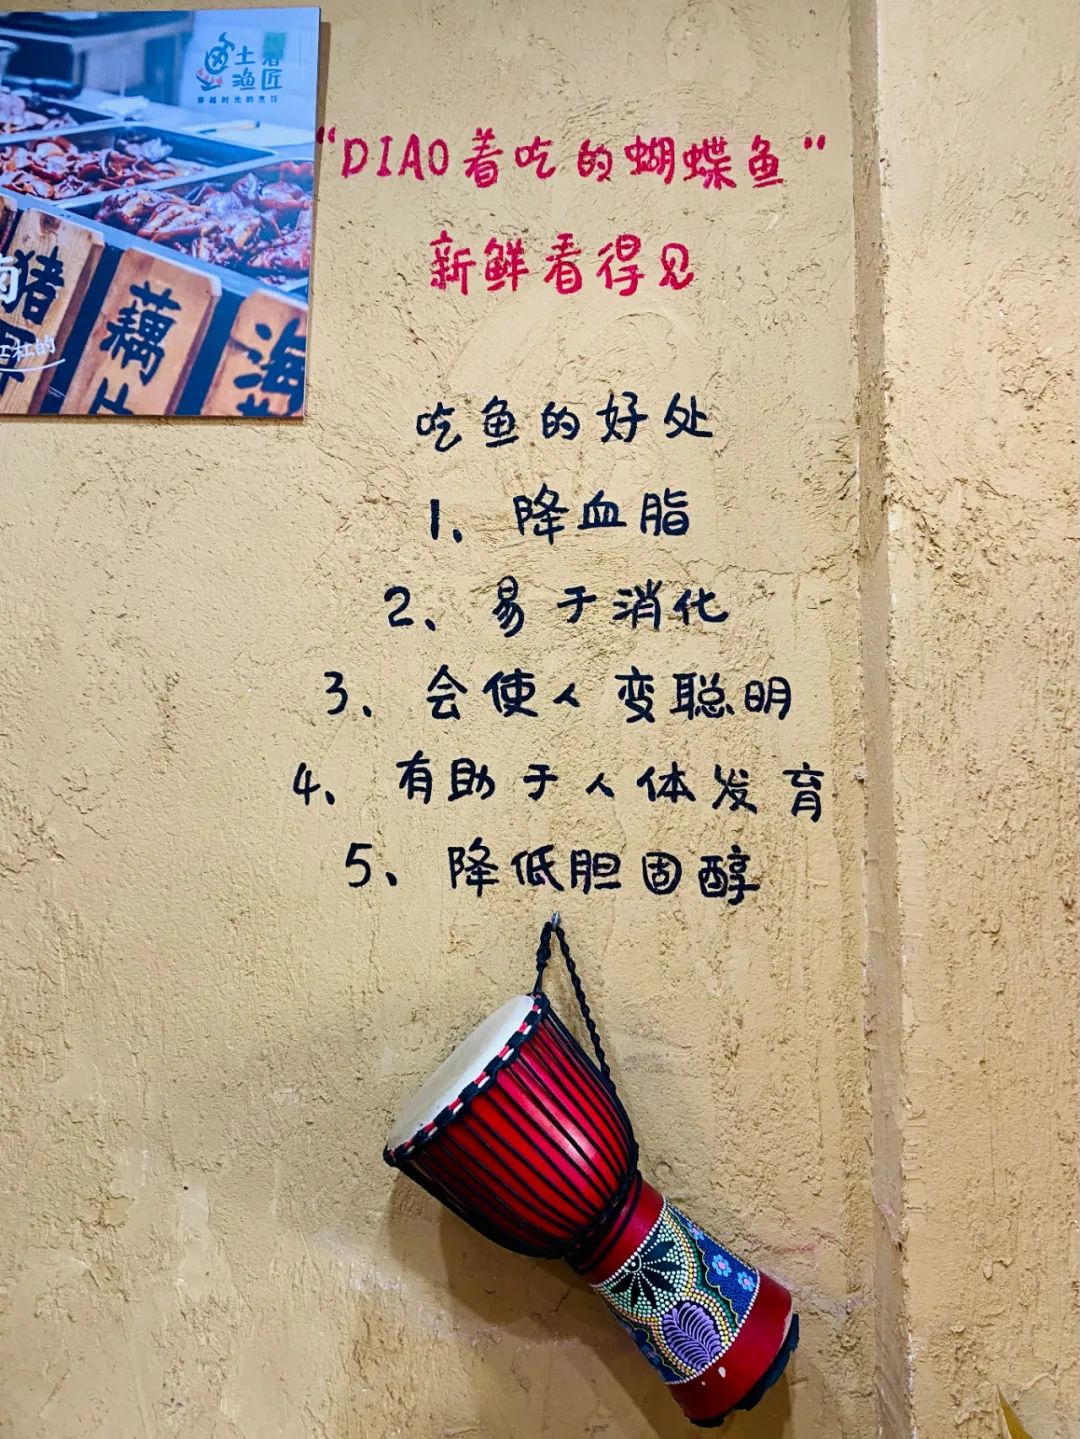 土著
渔匠
穿越时光的烹饪
猪
藕
海
杠杠的
“DIAO着吃的蝴蝶鱼”
新鲜看得见
吃鱼的好处
1、降血脂
2、易于消化
3、会使人变聪明
4、有助于人体发育
5、降低胆固醇